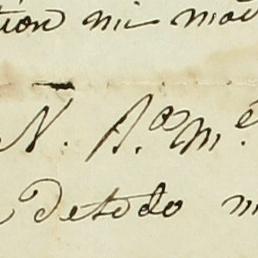 tion mi mad
N. A.ª m.e
Detodo m